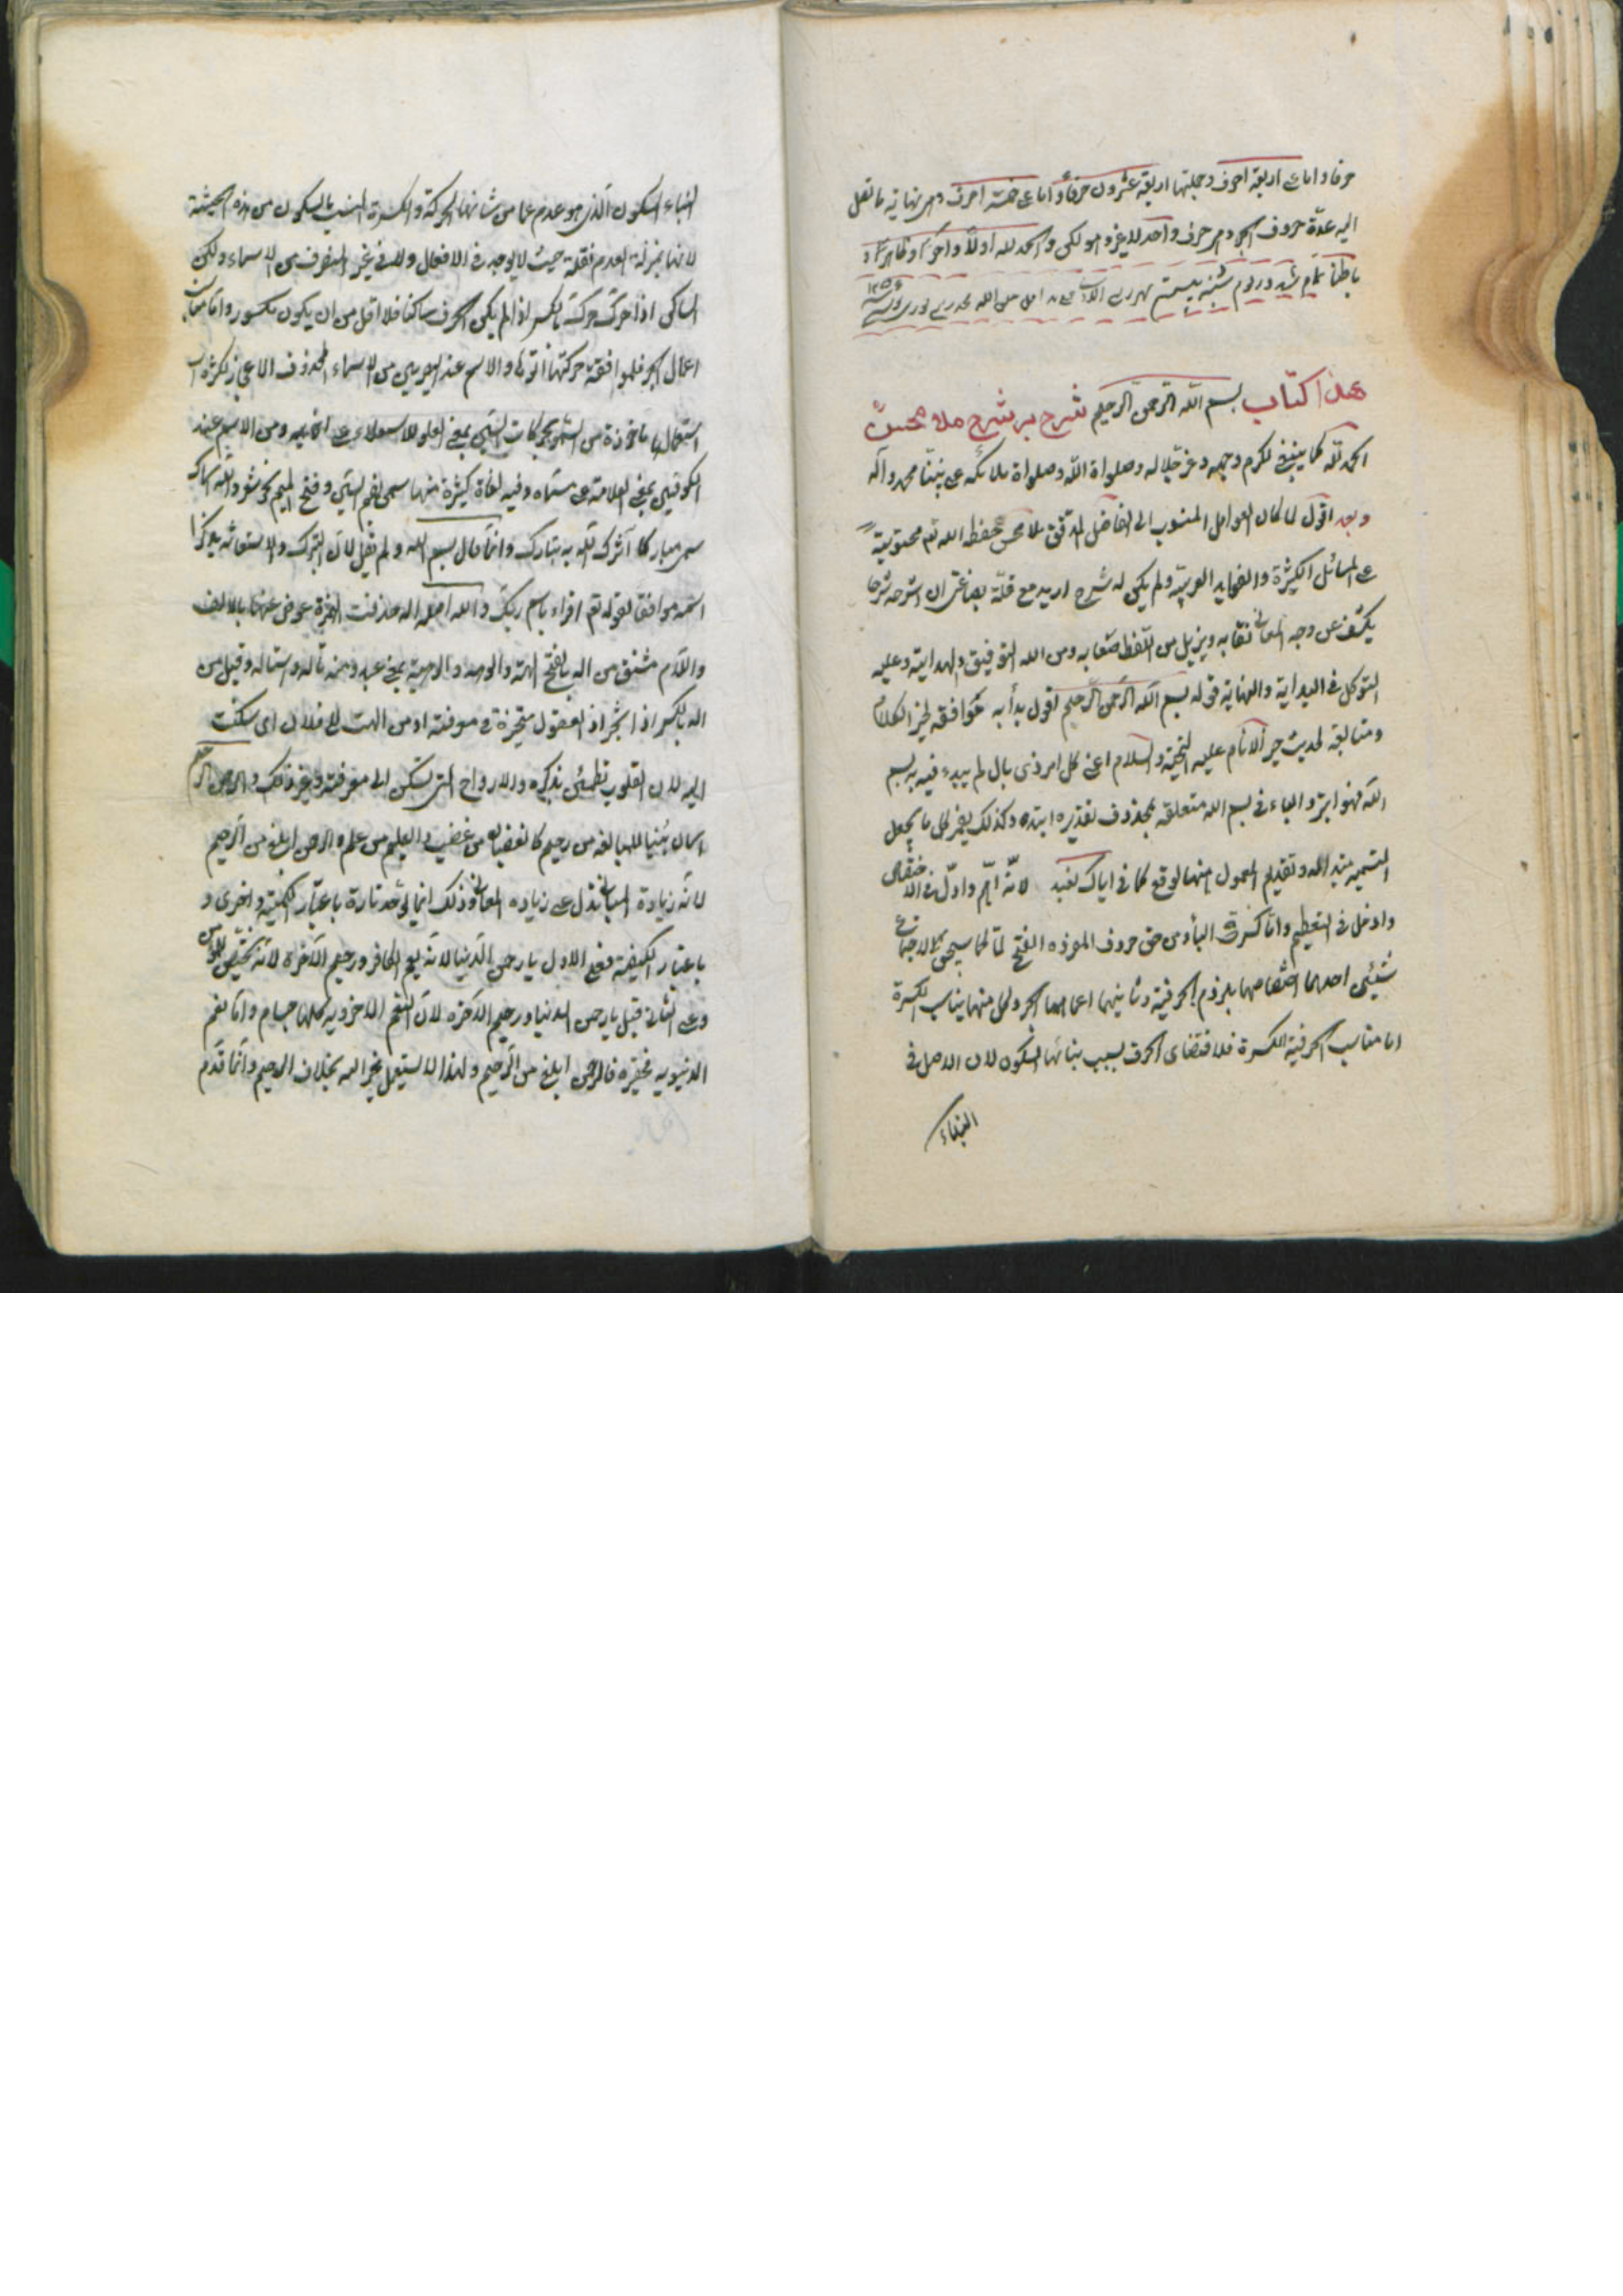 حرفا و اما على اربعة احرف و جملتها اربعة عشرون حرفاً و اما على خمسة احرف و هى نهاية ما تصل
اليه عدّة حروف الجر و هر حرف واحد لا غير و هو لكن و الحمد لله اولاً و آخراً و ظاهراً و
باطناً تمام شد در يوم شنبه بيستم شهر ربيع ١٢٥٦
هذا كتاب بسم الله الرحمن الرحيم شرح بر شرح ملا محسن
الحمد لله كما ينبغى لكرم وجهه و عز جلاله و صلواة الله و صلواة ملائكته على نبيّنا محمد و آله
و بعد اقول لما كان العوامل المنسوب الى الفاضل المدقق ملا محسن حفظه الله تم محتوية
على المسائل الكثيرة و الفوايد العربيّه و لم يكن له شرح اريد مع قلّة بضاعتى ان اشرحه شرحا
يكشف عن وجه المعانى نقابه و يزيل من اللّفظ صعابه و من الله التوفيق و الهداية و عليه
التوكل فى البداية و النهاية قوله بسم الله الرّحمن الرّحيم اقول بدأ به موافقه لخير الكلام
و متابعة لحديث خير الانام عليه التحيّة و السلام اعنى كل امر ذى بال لم يبدء فيه ببسم
الله فهو ابتر و الباء فى بسم الله متعلقه بمحذوف تقديره ابتدء و كذلك يضمر كل ما يجعل
التسميه مبتد اله و تقديم المعمول منها اوقع كما فى اياك نعبد لانّه اهمّ و ادلّ على الاختصاص
و ادخل فى التعظيم و انّما كسرة الباء و من حق حروف المفرده الفتح لما
شيئين احدهما اختصاصها بلزوم الحرفية و ثانيهما اعمالها الجر و كل منهما يناسب الكسرة
اما مناسب الحرفية الكسرة فلا قتضاى الحرف بسبب بنائها السكون لان الاصل فى
البناء
البناء السكون الّذى هو عدم عما من شانه الحركة و الكسرة انسب بالسكون من هذه الحيثية
لانها بمنزلة العدم لقلة حيث لا يوجد فى الافعال و لا فى غير المنصرف من الاسماء و لكن
الساكن اذا حرّك حرّك بالكسر اذا لم يكن الحرف ساكنا فلا اقل من ان يكون مكسور و اما
اعمال الجر فلموافقة حركتها اثرها و الاسم عند البصريين من الاسماء المحذوف الاعجاز لكثرة
استعمال ماخوذة من السمو بحركات السّين بمعنى العلو للاستعلاء على اخويه و من الاسم عند
الكوفيين بمعنى العلامة على مسمّاه و فيه لغاة كثيرة منها سمى بضم السّين و فتح الميم
سمى مباركا آثرك الله به تبارك و انّما قال بسم الله و لم يقل لانّ التبرك و الاستعانه بذكر
اسمه موافقا لقوله تم اقراء باسم ربّك و الله اصله اله حذفت الهمزة عوض عنها بالالف
و اللام مشتق من اله بالفتح الهة و الوهيه بمعنى عبد و منه تأله و استاله و قيل من
اله بالكسر اذا تحيّر اذ العقول متحيّرة فى معرفته او من الهت الى فلان اى سكنت
اليه لان القلوب تطمئن بذكره و الارواح التى تسكن الى معرفته و غير ذلك و الرحمن الرحيم
اسمان بنيا للمبالغه من رحيم كالغضبان من غضب و العليم من علم و الرحمن ابلغ من الرّحيم
لانّه زيادة المبانى تدل على زيادة المعانى و ذلك انما يؤخذ تارة باعتبار الكميّة و اخرى و
باعتبار الكيفية فعلى الاول يا رحمن الدّنيا لانّه يعم الكافر و رحيم الآخرة لانّه يختصّ المؤمن
و على الثانى قيل يا رحمن الدنيا و رحيم الآخرة لانّ النعم الاخرويه كلها جسام و اما نعم
الدنيويه فحقيره فالرحمن ابلغ من الرّحيم و لهذا لا يستعمل لغير الله بخلاف الرحيم و انّما قدّم